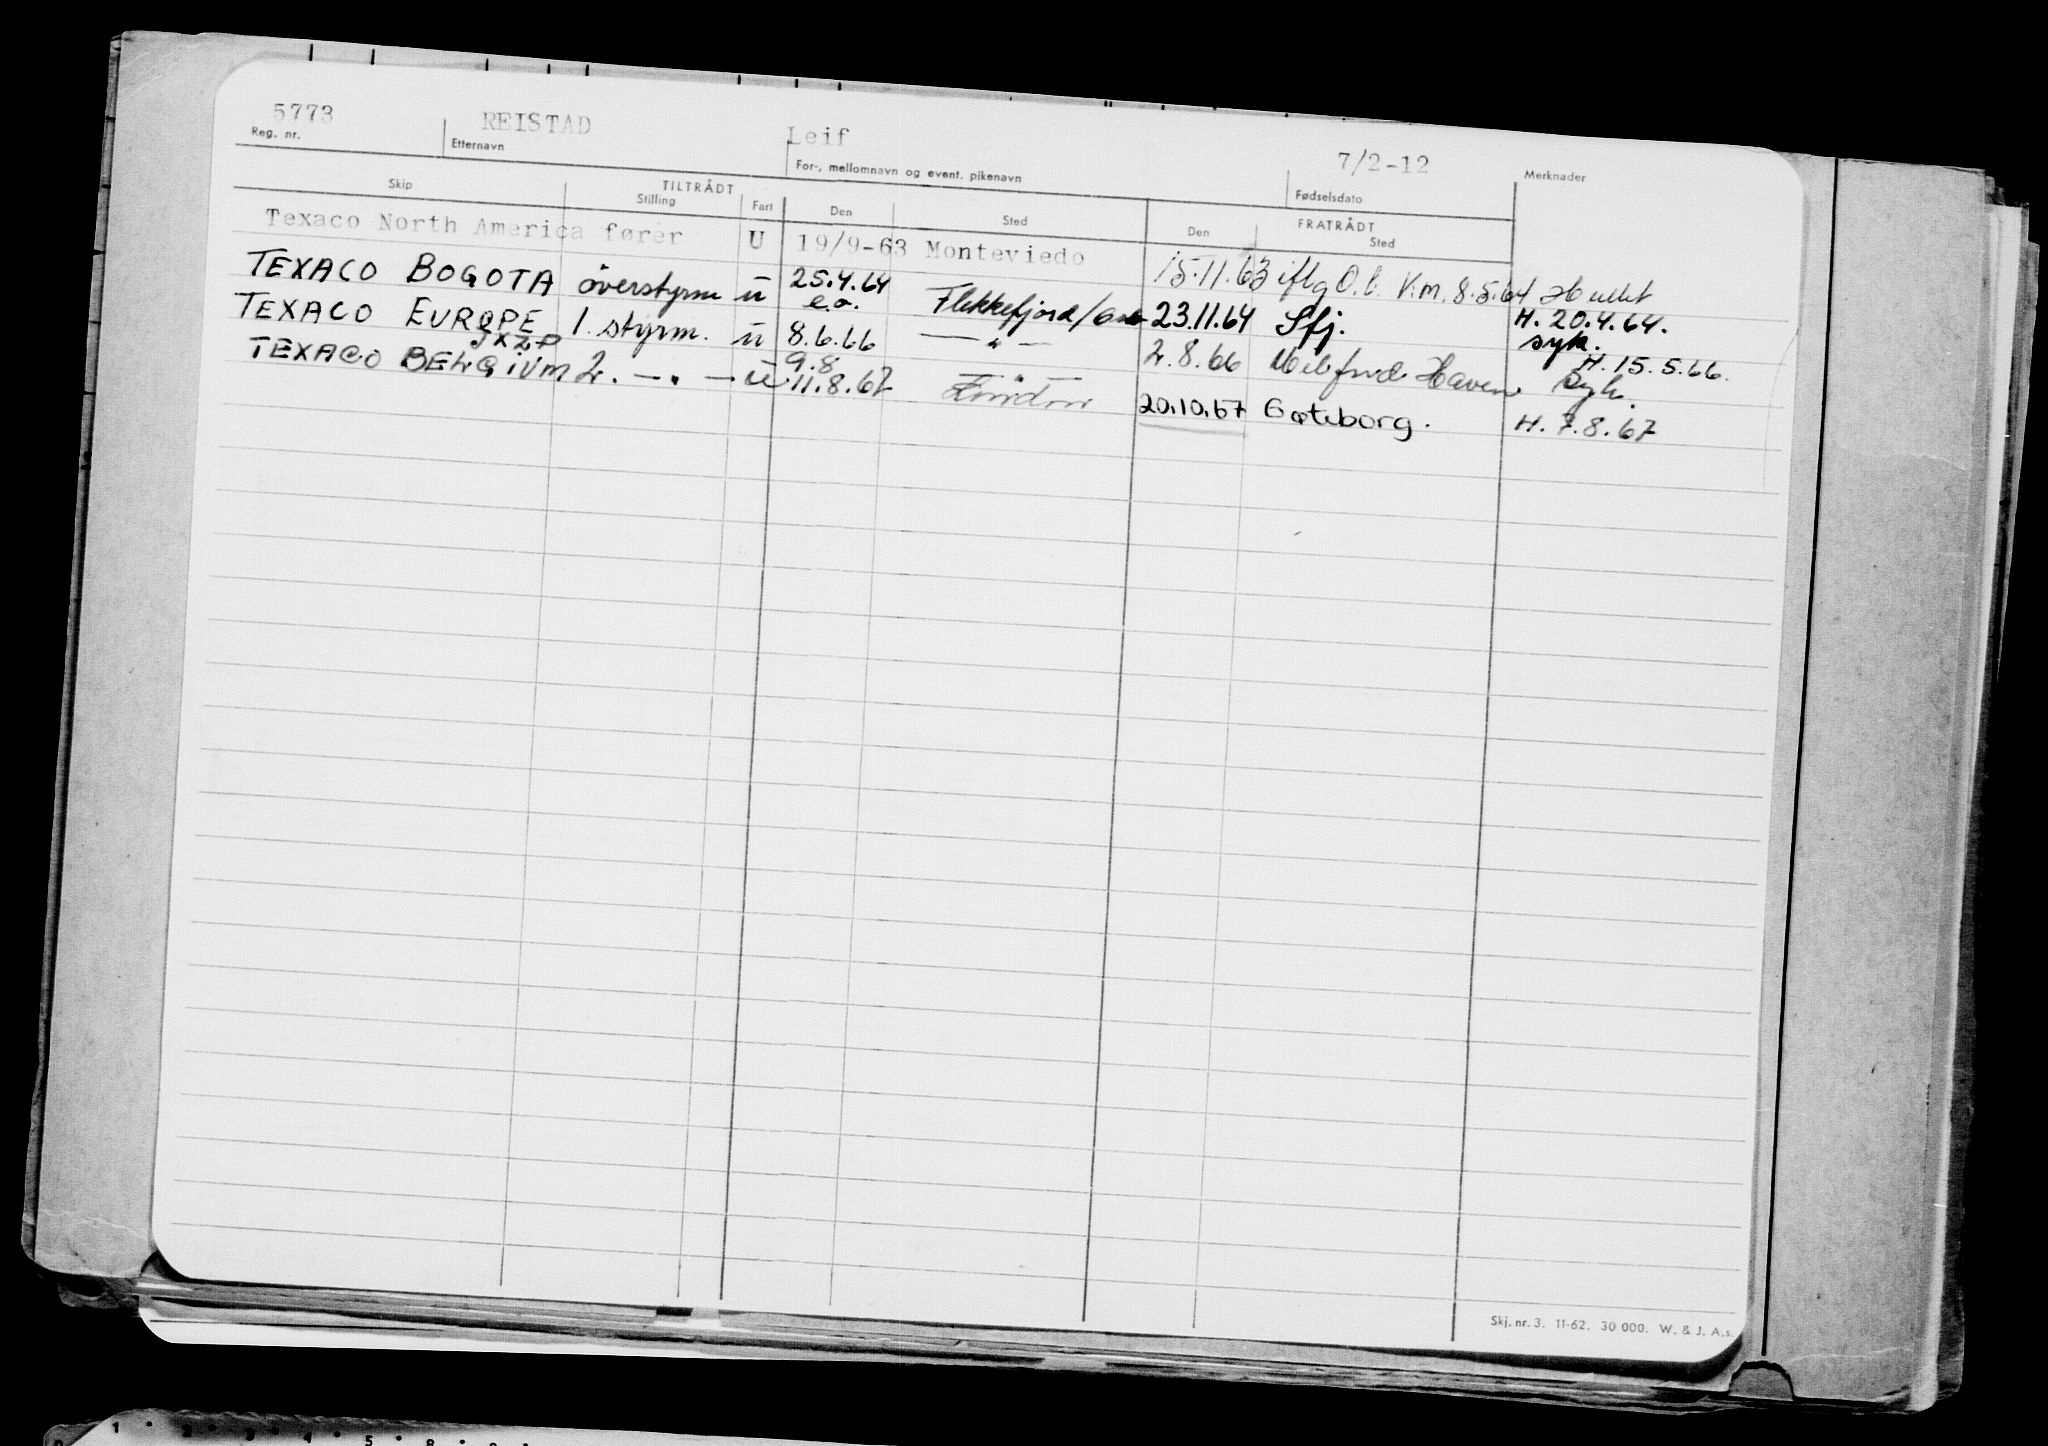 5773 REISTAD Leif 7/2-12
Reg. nr. Etternavn For-, mellomnavn og event. pikenavn Fødselsdato Merknader
TILTRÅDT FRATRÅDT
Skip Stilling Fart Den Sted Den Sted
Texaco North America fører U 19/9-63 Monteviedo 15.11.63 iflg O.l. V.m. 8.5.64
TEXACO BOGOTA overstyrm u 25.4.64 Flekkefjord/ 23.11.64 Sfj. H. 20.4.64.
e.o. syk.
TEXACO EUROPE 1. styrm. u 8.6.66 — " — 2.8.66 Milford Haven H. 15.5.66.
JXZP 9.8 Syk.
TEXACO BELGIUM 2. — " — u 11.8.67 20.10.67 Gøteborg. H. 7.8.67
Skj. nr. 3. 11-62. 30 000. W. & J. A.s.
1 2 3 4 5 8 9